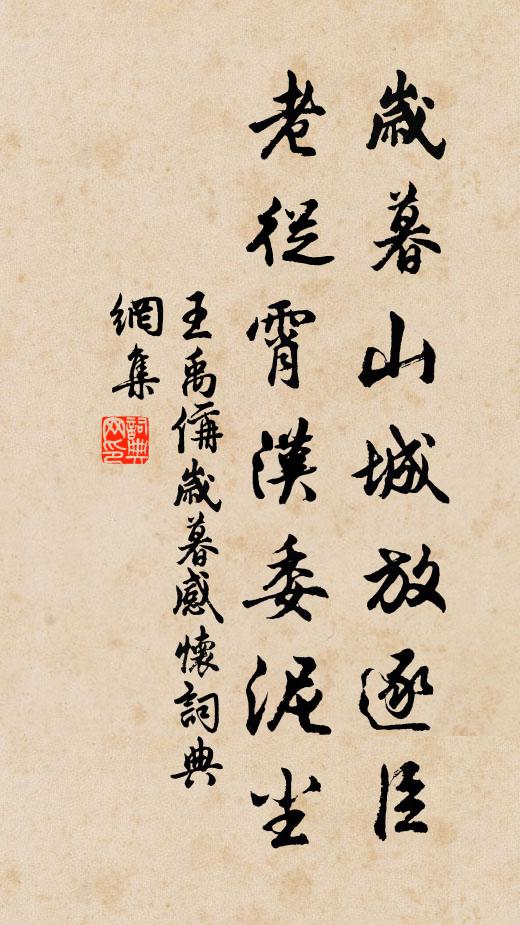 歲暮山城放逐臣
老從霄漢委泥尘
王禹偁歲暮感懷詞典
網集
詞典网印